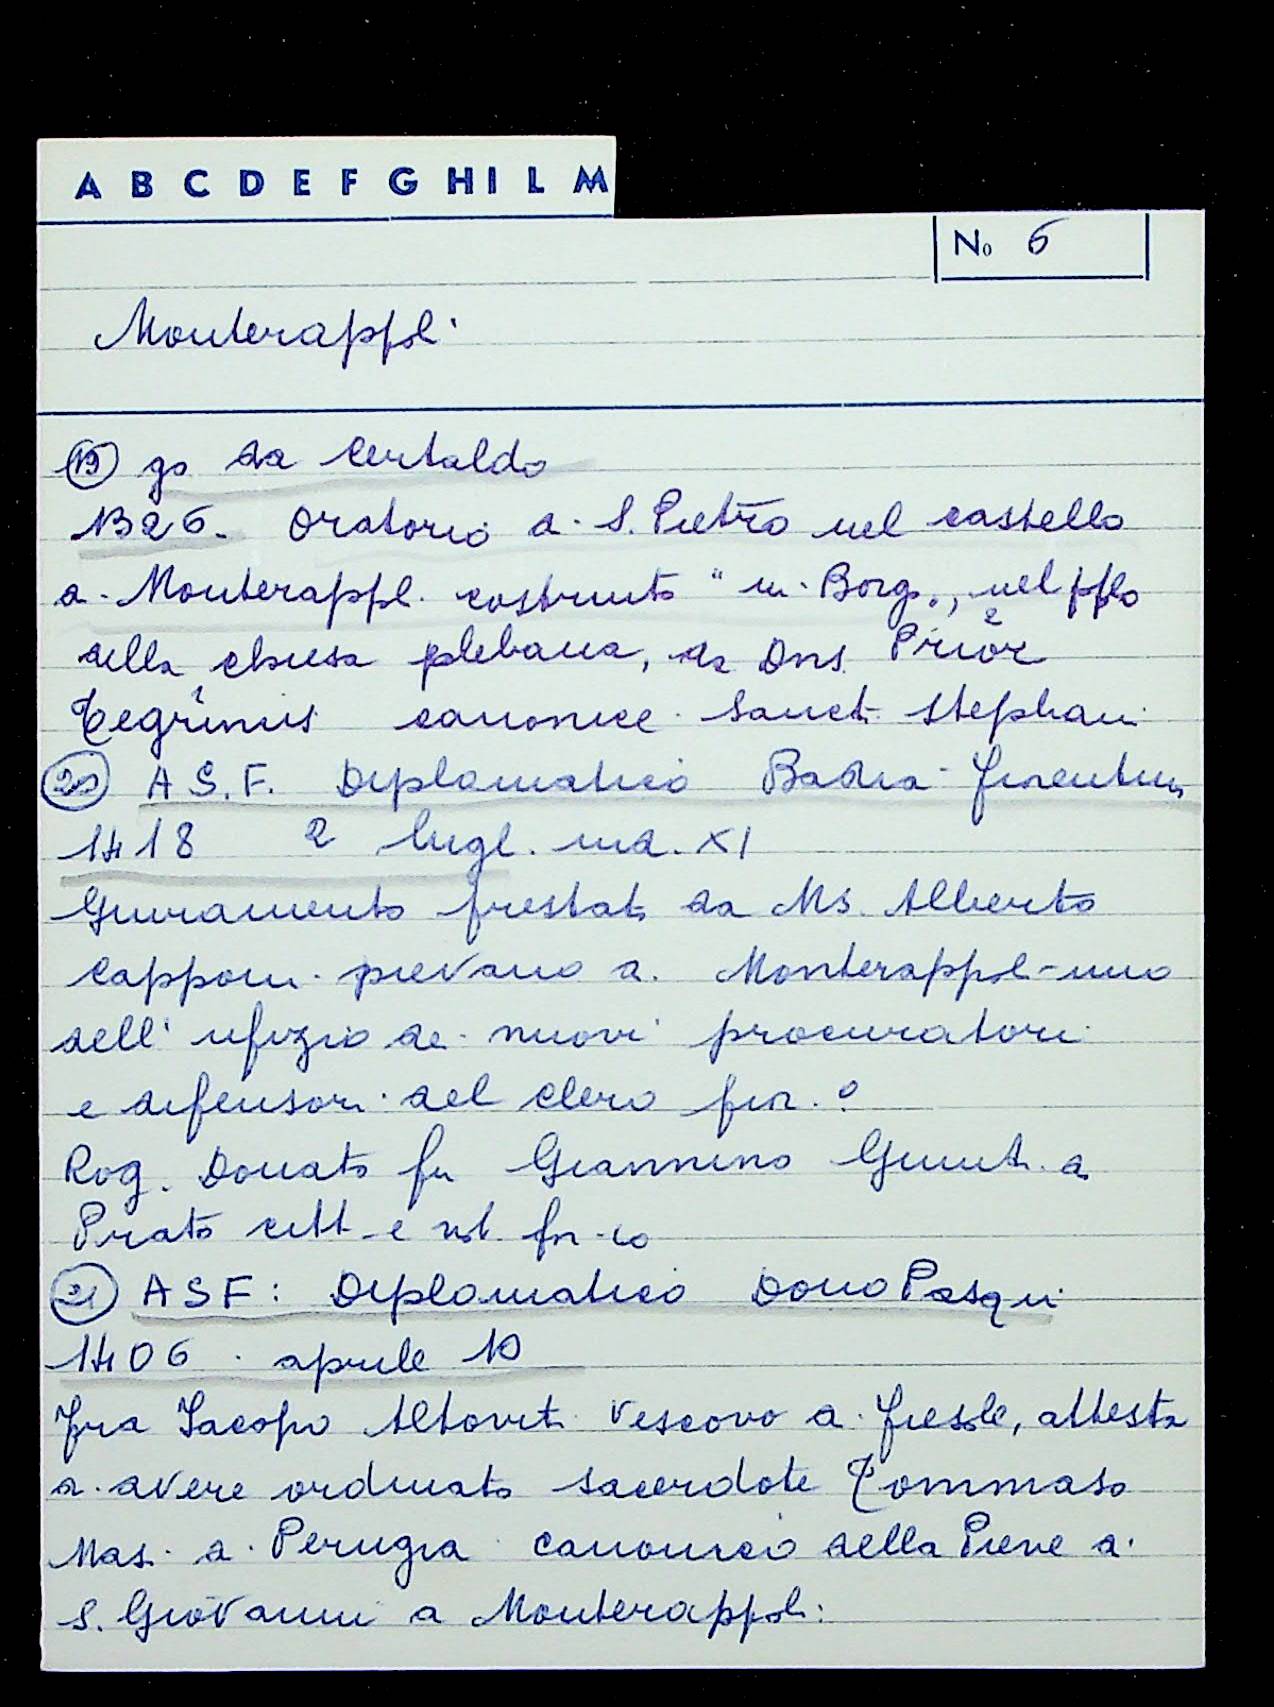 A B C D E F G H I L M
No 6
Monterappoli
19 go da Certaldo
1326. Oratorio di S. Pietro nel castello
di Monterappoli costruito "in Borgo", nel pplo
della chiesa plebana, da Dns Prior
Tegrinus canonice Sancti Stephani
20 A S. F. Diplomatico Badia fiorentina
1418 2 lugl. ind. XI
Giuramento prestato da Ms. Alberto
Capponi pievano di Monterappoli - uno
dell' ufizio dei nuovi procuratori
e difensori del clero fior.o
Rog. Donato fu Giannino Giunti di
Prato citt. e not. fior-io
21 A S F: Diplomatico Dono Pasqui
1406 aprile 10
fra Jacopo Altoviti vescovo di fiesole, attesta
di avere ordinato sacerdote Tommaso
Masi di Perugia canonico della Pieve di
S. Giovanni a Monterappoli: